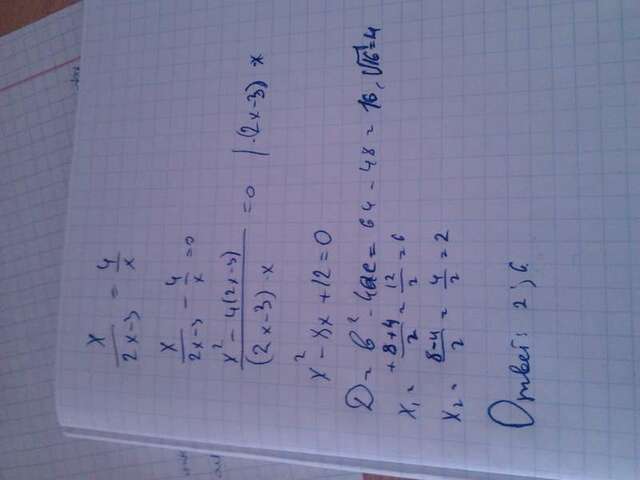 x/(2x-3) = 4/x
x/(2x-3) - 4/x = 0
(x² - 4(2x-3))/((2x-3)·x) = 0 | ·(2x-3)·x
x² - 8x + 12 = 0
D = b² - 4ac = 64 - 48 = 16, √16 = 4
x₁ = (+8+4)/2 = 12/2 = 6
x₂ = (8-4)/2 = 4/2 = 2
Ответ: 2; 6